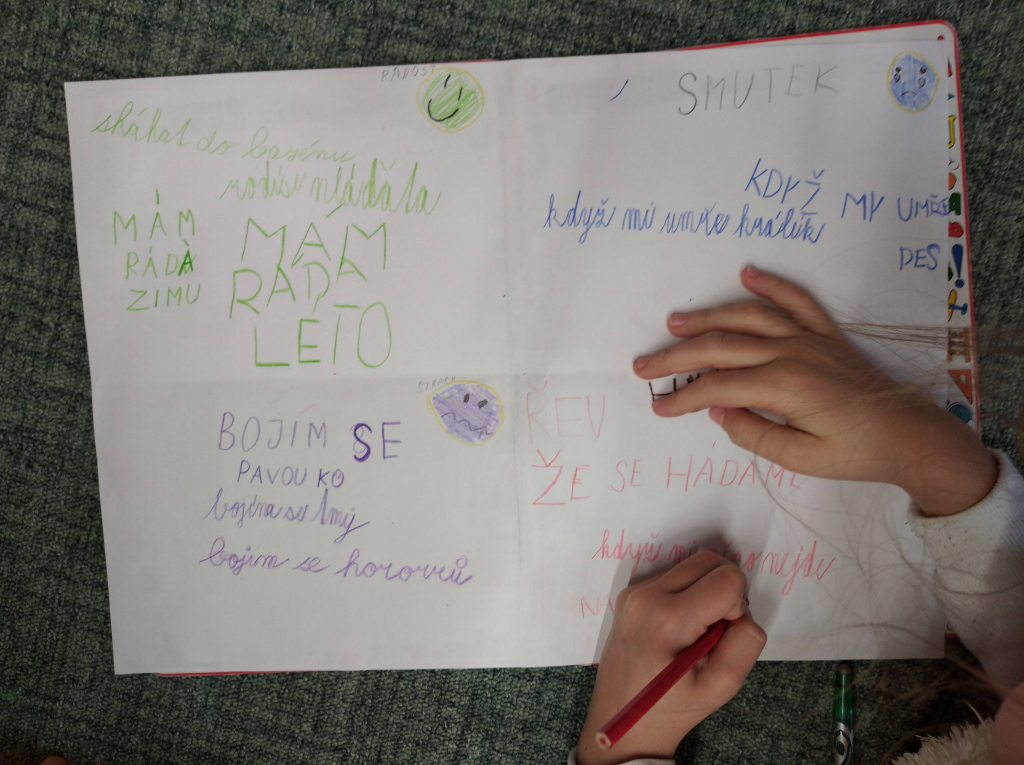 RADOST
skákat do bazénu
rodiče mláďata
MÁM
RÁDA
ZIMU
MÁM
RÁDA
LÉTO
SMUTEK
KDYŽ
MY UMŘE
PES
když mi umře králík
STRACH
BOJÍM SE
PAVOUKO
bojíma se tmy
bojím se hororů
ŘEV
ŽE SE HÁDÁME
když nejde